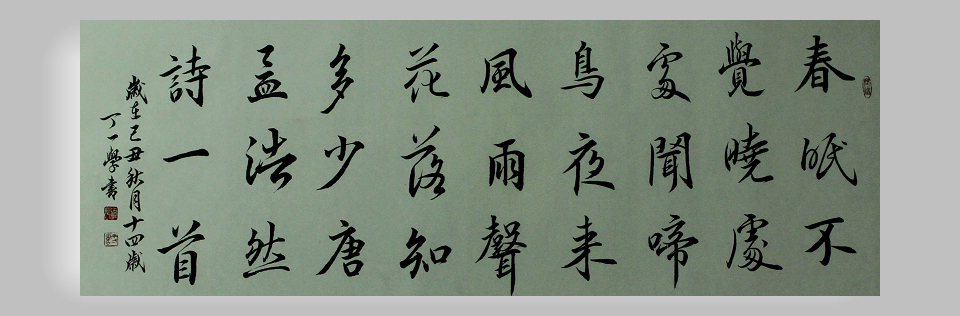 春眠不
覺曉處
處聞啼
鳥夜来
風雨聲
花落知
多少唐
孟浩然
詩一首
歲在己丑秋月十四歲
丁一學書